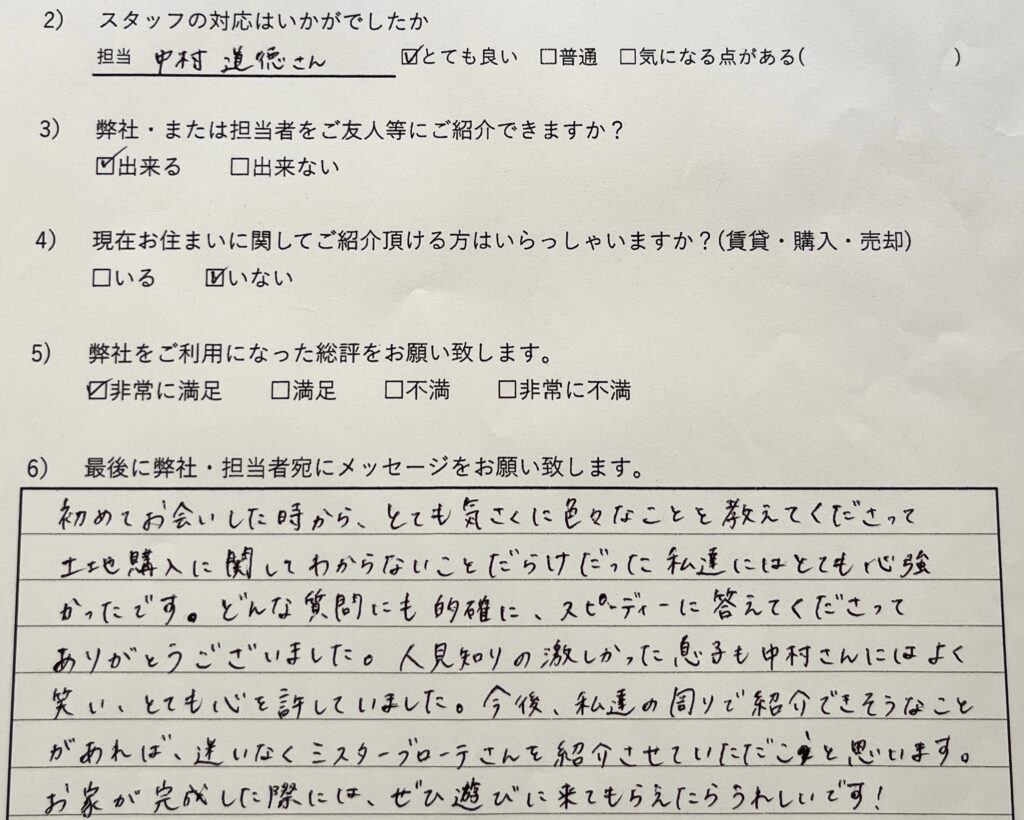 2) スタッフの対応はいかがでしたか
担当 中村 道徳さん ☑とても良い □普通 □気になる点がある( )
3) 弊社・または担当者をご友人等にご紹介できますか？
☑出来る □出来ない
4) 現在お住まいに関してご紹介頂ける方はいらっしゃいますか？(賃貸・購入・売却)
□いる ☑いない
5) 弊社をご利用になった総評をお願い致します。
☑非常に満足 □満足 □不満 □非常に不満
6) 最後に弊社・担当者宛にメッセージをお願い致します。
初めてお会いした時から、とても気さくに色々なことを教えてくださって
土地購入に関してわからないことだらけだった私達にはとても心強
かったです。どんな質問にも的確に、スピーディーに答えてくださって
ありがとうございました。人見知りの激しかった息子も中村さんにはよく
笑い、とても心を許していました。今後、私達の周りで紹介できそうなこと
があれば、迷いなくミスターブローテさんを紹介させていただこうと思います。
お家が完成した際には、ぜひ遊びに来てもらえたらうれしいです！